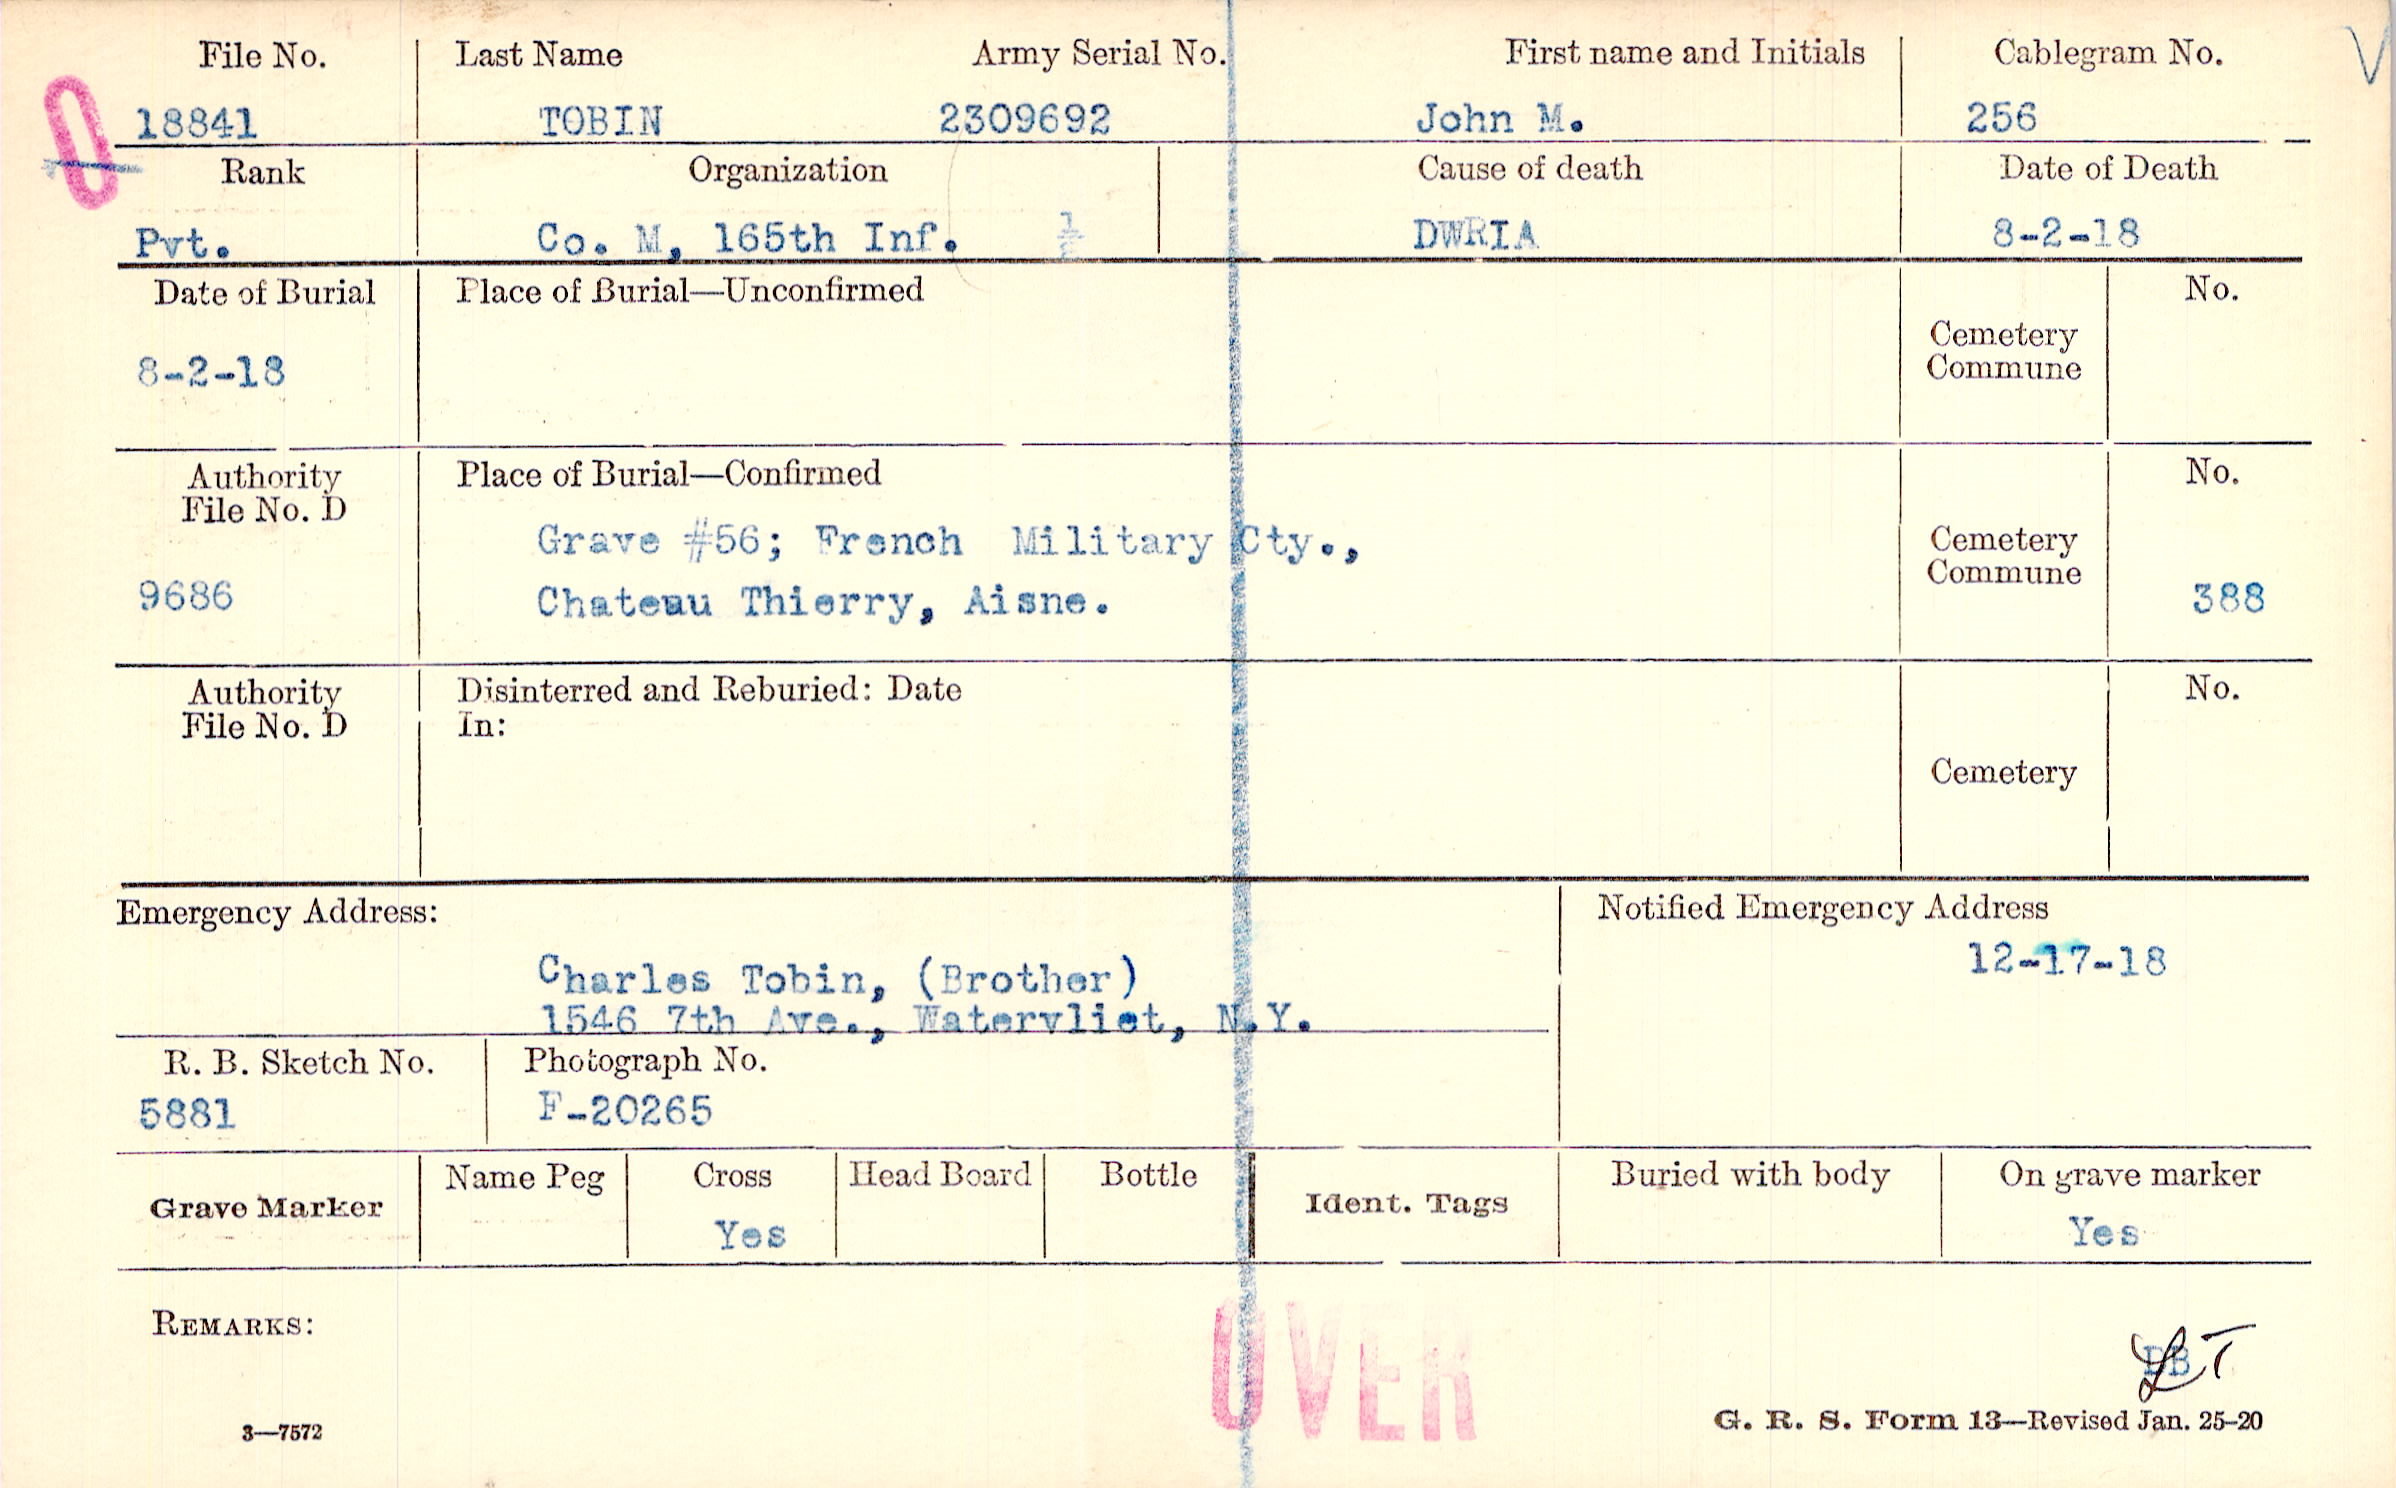 File No. Last Name Army Serial No. First name and Initials Cablegram No.
18841 TOBIN 2309692 John M. 256
Rank Organization Cause of death Date of Death
Pvt. Co. M, 165th Inf. DWRIA 8-2-18
Date of Burial Place of Burial—Unconfirmed No.
Cemetery
Commune
8-2-18
Authority Place of Burial—Confirmed No.
File No. D
Grave #56; French Military Cty., Cemetery
Commune
9686 Chateau Thierry, Aisne. 388
Authority Disinterred and Reburied: Date No.
File No. D In:
Cemetery
Emergency Address: Notified Emergency Address
12-17-18
Charles Tobin, (Brother)
1546 7th Ave., Watervliet, N.Y.
R. B. Sketch No. Photograph No.
5881 F-20265
Grave Marker Name Peg Cross Head Board Bottle Ident. Tags Buried with body On grave marker
Yes Yes
REMARKS:
OVER
LT
3—7572 G. R. S. Form 13—Revised Jan. 25-20